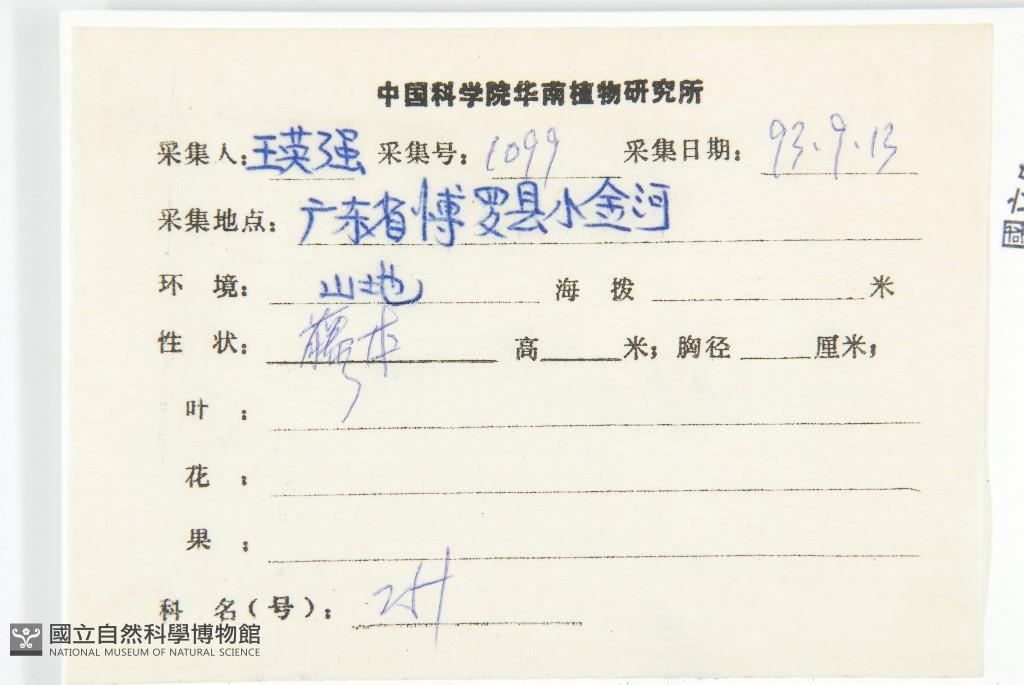 中国科学院华南植物研究所
采集人：王英强 采集号：1099 采集日期：93.9.13
采集地点：广东省博罗县小金河
环 境：山地 海 拨 米
性 状：藤本 高 米；胸径 厘米；
叶：
花：
果：
科 名（号）：
國立自然科學博物館
NATIONAL MUSEUM OF NATURAL SCIENCE